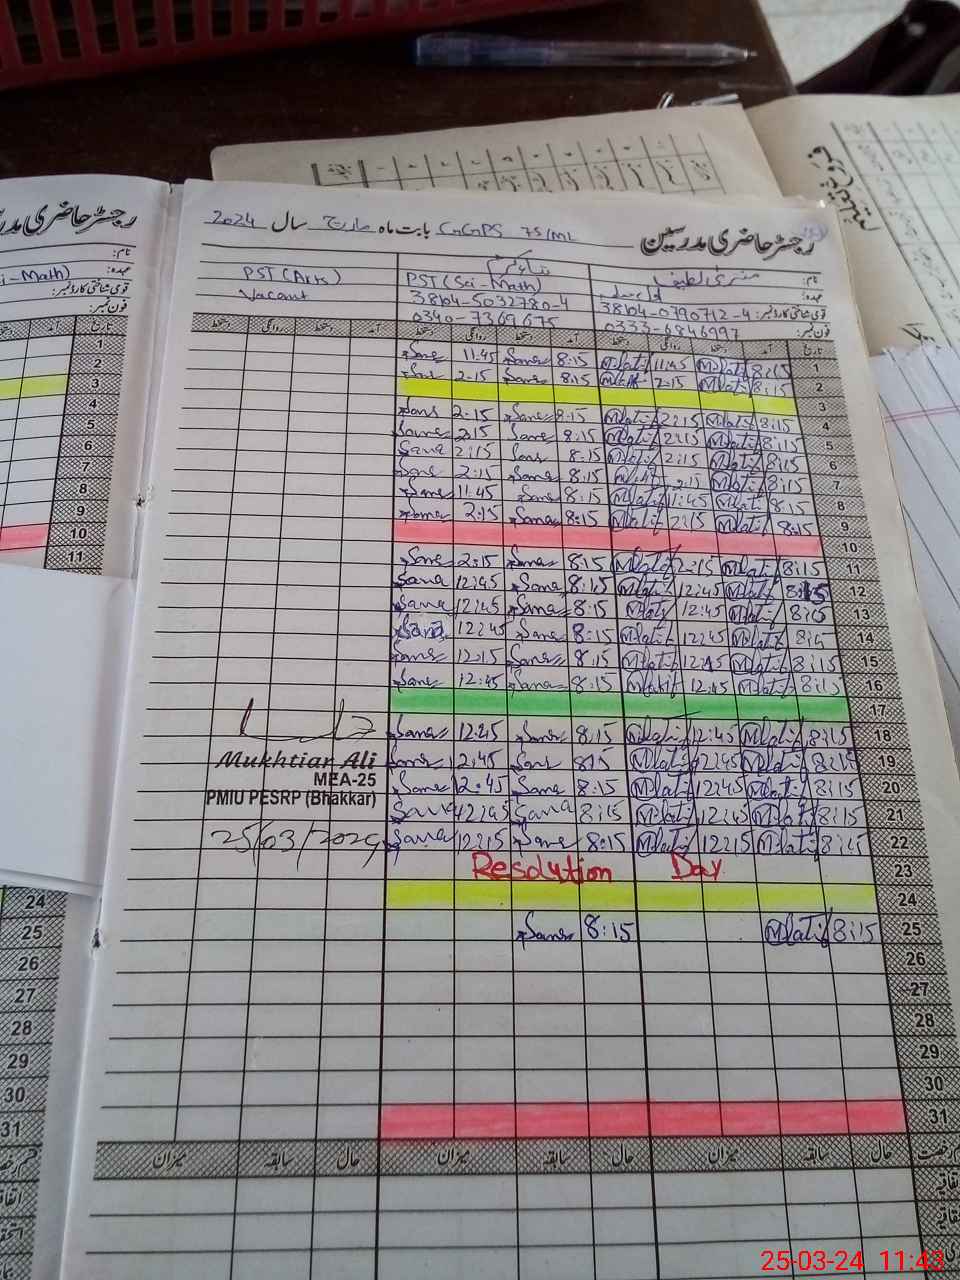 رجسٹر حاضری مدرسین GGPS 75/ML بابت ماہ مارچ سال 2024
نام:
عہدہ: PST (Sci-Math) PST (Arts)
قومی شناختی کارڈ نمبر: 38104-0790712-4 38104-5032780-4 Vacant
فون نمبر: 0333-6846997 0340-7369675
تاریخ آمد دستخط روانگی دستخط آمد دستخط روانگی دستخط آمد دستخط روانگی دستخط
1 8:15 M.latif 11:45 M.latif 8:15 Sana 11:45 Sana
2 8:15 M.latif 2:15 M.latif 8:15 Sana 2:15 Sana
3
4 8:15 M.latif 2:15 M.latif 8:15 Sana 2:15 Sana
5 8:15 M.latif 2:15 M.latif 8:15 Sana 2:15 Sana
6 8:15 M.latif 2:15 M.latif 8:15 Sana 2:15 Sana
7 8:15 M.latif 2:15 M.latif 8:15 Sana 2:15 Sana
8 8:15 M.latif 11:45 M.latif 8:15 Sana 11:45 Sana
9 8:15 M.latif 2:15 M.latif 8:15 Sana 2:15 Sana
10
11 8:15 M.latif 2:15 M.latif 8:15 Sana 2:15 Sana
12 8:15 M.latif 12:45 M.latif 8:15 Sana 12:45 Sana
13 8:15 M.latif 12:45 M.latif 8:15 Sana 12:45 Sana
14 8:15 M.latif 12:45 M.latif 8:15 Sana 12:45 Sana
15 8:15 M.latif 12:45 M.latif 8:15 Sana 12:15 Sana
16 8:15 M.latif 12:45 M.latif 8:15 Sana 12:45 Sana
17
18 8:15 M.latif 12:45 M.latif 8:15 Sana 12:45 Sana
19 8:15 M.latif 12:45 M.latif 8:15 Sana 2:45 Sana
20 8:15 M.latif 12:45 M.latif 8:15 Sana 12:45 Sana
21 8:15 M.latif 12:45 M.latif 8:15 Sana 12:45 Sana
22 8:15 M.latif 12:15 M.latif 8:15 Sana 12:15 Sana
Mukhtiar Ali
MEA-25
PMIU PESRP (Bhakkar)
25/03/2024
23 Resolution Day
24
25 8:15 M.latif 8:15 Sana
26
27
28
29
30
31
حال سابقہ میزان حال سابقہ میزان حال سابقہ میزان
رجسٹر حاضری
i-Math)
نام:
عہدہ:
قومی شناختی کارڈ نمبر:
فون نمبر:
تاریخ آمد
1
2
3
4
5
6
7
8
9
10
11
24
25
26
27
28
29
30
31
25-03-24 11:43